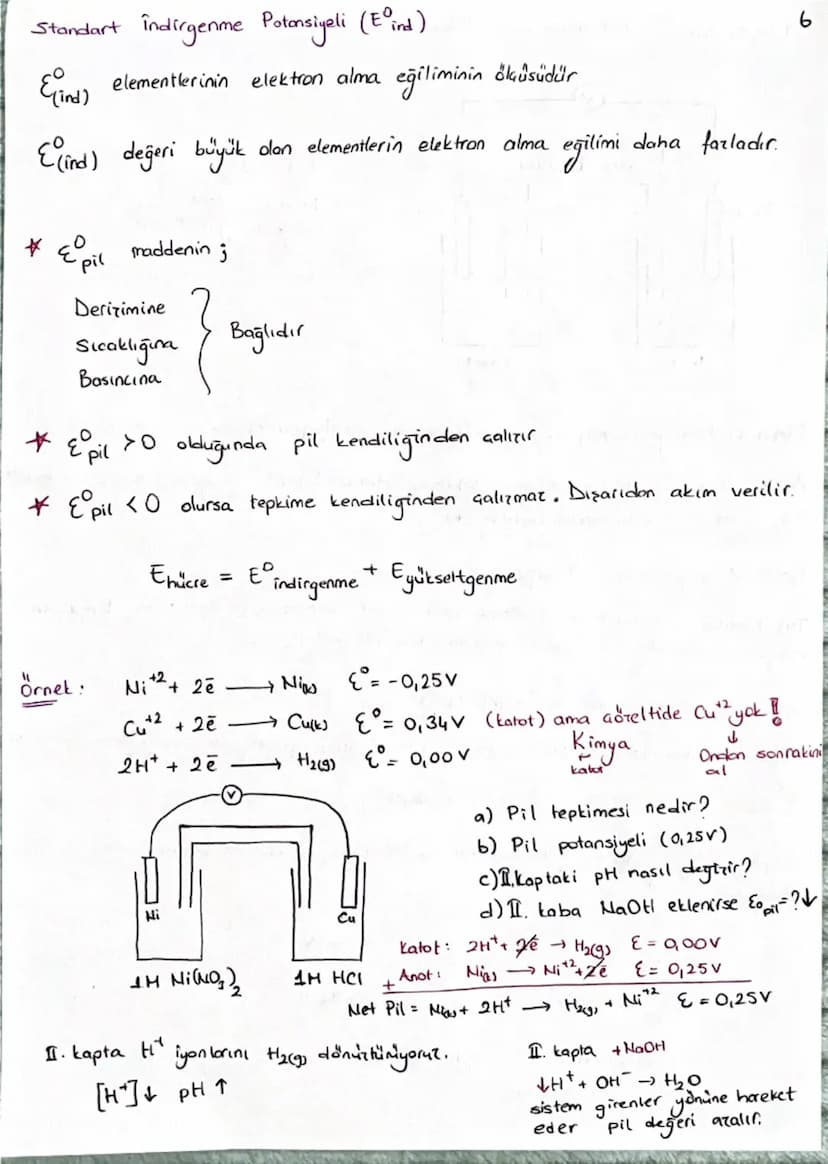 6
Standart İndirgenme Potansiyeli (E⁰ind)
Ɛ⁰(ind) elementlerinin elektron alma eğiliminin ölçüsüdür
Ɛ⁰(ind) değeri büyük olan elementlerin elektron alma eğilimi daha fazladır.
* Ɛ⁰pil maddenin ;
Derişimine
Sıcaklığına } Bağlıdır
Basıncına
* Ɛ⁰pil > 0 olduğunda pil kendiliğinden çalışır
* Ɛ⁰pil < 0 olursa tepkime kendiliginden çalışmaz. Dışarıdan akım verilir.
Ehücre = E⁰indirgenme + Eyükseltgenme
Örnek : Ni⁺² + 2ē → Ni(k) Ɛ⁰ = -0,25V
Cu⁺² + 2ē → Cu(k) Ɛ⁰ = 0,34V (katot) ama çözeltide Cu⁺² yok!
2H⁺ + 2ē → H₂(g) Ɛ⁰ = 0,00V
Kimya
katot
↓
Ondan sonrakini
al
V
Ni
Cu
1M Ni(NO₃)₂
1M HCl
a) Pil tepkimesi nedir?
b) Pil potansiyeli (0,25V)
c) II. kaptaki pH nasıl değişir?
d) II. kaba NaOH eklenirse Ɛ₀pil = ? ↓
Katot : 2H⁺ + 2ē → H₂(g) Ɛ = 0,00V
+ Anot : Ni(k) → Ni⁺² + 2ē Ɛ = 0,25V
Net Pil = Ni(k) + 2H⁺ → H₂(g) + Ni⁺² Ɛ = 0,25V
II. kapta H⁺ iyonlarını H₂(g) dönüştürüyoruz.
[H⁺]↓ pH ↑
II. kapta +NaOH
↓H⁺ + OH⁻ → H₂O
sistem girenler yönüne hareket
eder pil değeri azalır.